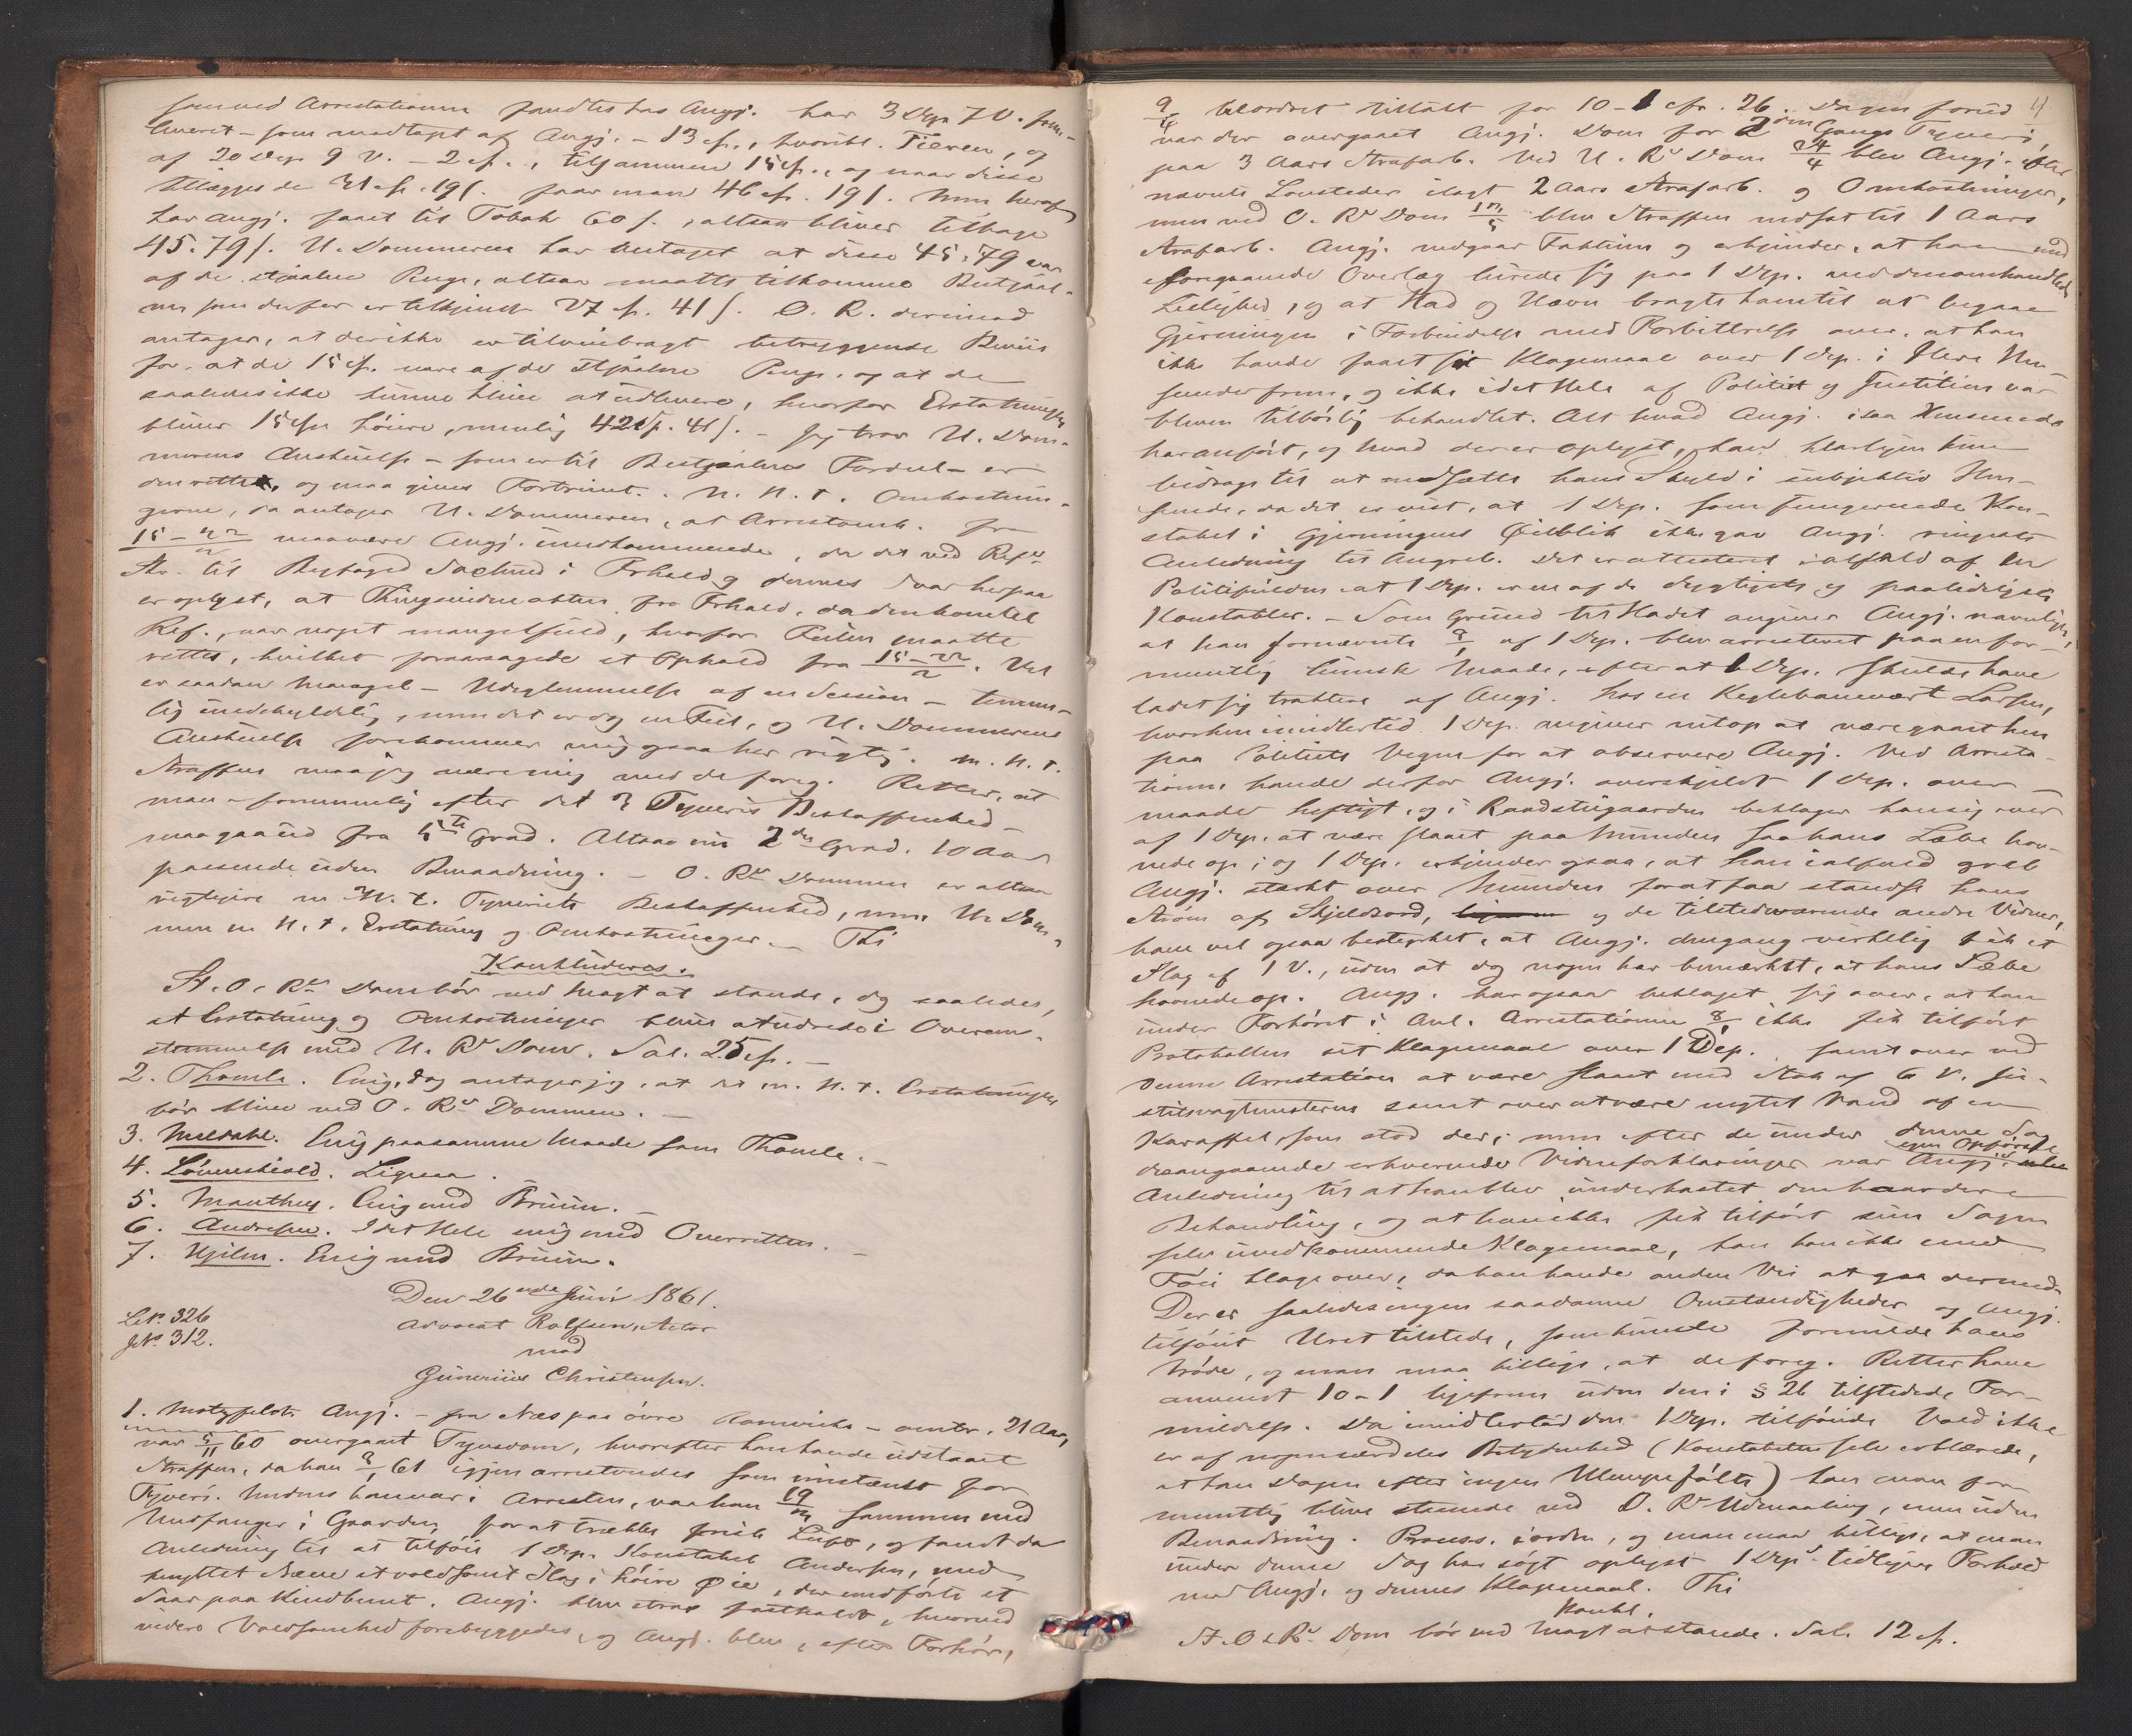 som ved Arrestationen fandtes hos Angj. har 3 Dep. 7 V. forn.
leveret – som modtaget af Angj. – 13 sp., hvoribl. Tieren, og
af 20 Dep. 9 V. – 2 sp., tilsammen 15 sp., og naar disse
tillægges de 31 sp. 19 s. faar man 46 sp. 19 s. Men heraf
har Angj. faaet til Tobak 60 s., altsaa bliver tilbage
45. 79 s. U. Dommeren har antaget at disse 45. 79 var
af de stjaalne Penge, altsaa maatte tilkomme Bestjaal-
ne som derfor er tilkjendt 27 sp. 41 s. O. R. derimod
antager, at der ikke er tilveiebragt betryggende Beviis
for, at de 15 sp. vare af de stjaalne Penge, og at de
saaledes ikke kunne blive at udlevere, hvorfor Erstatningen
bliver 15 sp. høiere, nemlig 42 sp. 41 s. – Jeg tror U. Dom-
merens Anskuelse – som er til Bestjaalnes Fordeel – er
den rette, og maa gives Fortrinet. M. H. t. Omkostnin-
gerne, da antager U. Dommeren, at Arrestomk. fra
15–22/2 maa være Angj. uvedkommende, da det ved Refs
Skr. til Byfoged i Frhald og dennes Svar herpaa
er oplyst, at Thingsvidneakten fra Frhald, da den kom til
Ref., var noget mangelfuld, hvorfor Feilen maatte
rettes, hvilket foraarsagede et Ophold fra 15–22/2. Vel
er saadan Mangel – Udeglemmelse af en Session – temme-
lig undskyldelig, men det er dog en Feil, og U. Dommerens
Anskuelse forekommer mig ogsaa her rigtig. M. H. t.
Straffen maa jeg være enig med de foreg. Retter, at
man – fornemmelig efter det 3 Tyveris Beskaffenhed –
maa gaa ud fra 5te Grad. Altsaa nu 2den Grad. 10 Aar
passende uden Benaadning. – O. Rs Dommen er altsaa
rigtigere m. H. t. Tyveriets Beskaffenhed, men U. Dom-
men m. H. t. Erstatning og Omkostninger. – Thi
Konkluderes.
St. O. Rs Dom bør ved Magt at stande, dog saaledes,
at Erstatning og Omkostninger blive at udrede i Overens-
stemmelse med U. Rs Dom. Sal. 25 sp. –
2. Thomle. Enig, dog antager jeg, at det m. H. t. Erstatningen
bør blive ved O. Rs Dommen. –
3. Meldahl. Enig paa samme Maade som Thomle. –
4. Løvenskiold. Ligesaa.
5. Manthey. Enig med Bruun. –
6. Andresen. I det Hele enig med Overretten. –
7. Hjelm. Enig med Bruun.
Den 26nde Juni 1861.
L.No. 326
J.No. 312.
Advocat Rolfsen, Actor
mod
Gunerius Christensen.
1. Motzfeldt. Angj. – fra Næs paa øvre Romerike – omtr. 21 Aar,
var 5/11 60 overgaaet Tyvsdom, hvorefter han havde udstaaet
Straffen, da han 8/1 61 igjen arresteredes som mistænkt for
Tyveri. Medens han var i Arresten, var han 19/ sammen med
Medfanger i Gaarden for at trække frisk Luft, og fandt da
Anledning til at tilføie 1 Dep. Konstabel Andersen, med
knyttet Næve et voldsomt Slag i høire Øie, der medførte et
Saar paa Kindbenet. Angj. blev strax fastholdt, hvorved
videre Voldsomhed forebyggedes, og Angj. blev, efter Forhør,
4
9/4 beordret tiltalt for 10–1 cfr. 26. Dagen forud
var der overgaaet Angj. Dom for 2den Gangs Tyveri
paa 3 Aars Strafarb. Ved U. Rs Dom 24/4 blev Angj. efter
nævnte Lovsteder ilagt 2 Aars Strafarb. og Omkostninger,
men ved O. Rs Dom /5 blev Straffen nedsat til 1 Aars
Strafarb. Angj. vedgaar Faktum og erkjender, at han med
foregaaende Overlæg lurede sig paa 1 Dep. ved den omhandlede
Leilighed, og at Had og Hævn bragte ham til at begaae
Gjerningen i Forbindelse med Forbittrelse over, at han
ikke havde faaet sit Klagemaal over 1 Dep. i flere Hen-
seender frem, og ikke i det Hele af Politiet og Justitien var
bleven tilbørlig behandlet. Alt hvad Angj. i saa Henseende
har anført, og hvad der er oplyst, kan klarligen kun
bidrage til at nedsætte hans Skyld i subjektiv Hen-
seende, da det er vist, at 1 Dep. som fungerende Kon-
stabel i Gjerningens Øieblik ikke gav Angj. ringeste
Anledning til Angreb. Det er attesteret ialfald af en
Politifuldm. at 1 Dep. er en af de dygtigste og paalideligste
Konstabler. – Som Grund til Hadet angiver Angj. navnligen,
at han fornævnte 8/1 af 1 Dep. blev arresteret paa en for-
mentlig lumsk Maade, efterat 1 Dep. skulde have
ladet sig traktere af Angj. hos en Keglebanevært Larsen,
hvorhen imidlertid 1 Dep. angiver netop at være gaaet hen
paa Politiets Vegne for at observere Angj. Ved Arresta-
tionen havde derfor Angj. overskjeldt 1 Dep. over-
maade heftigt, og i Raadstuegaarden beklager han sig over
af 1 Dep. at være slaaet paa Munden saa hans Læbe hov-
nede op; og 1 Dep. erkjender ogsaa, at han ialfald greb
Angj. stærkt over Munden for at faa standse hans
Strøm af Skjeldsord, og de tilstedeværende andre Vidner,
have vel ogsaa bestyrket, at Angj. dengang virkelig fik et
Slag af 1 V., uden at dog nogen har bemærket, at hans Læbe
hovnede op. Angj. har ogsaa beklaget sig over, at han
under Forhøret i Anl. Arrestationen 8/1 ikke fik tilført
Protokollen sit Klagemaal over 1 Dep. samt over ved
denne Arrestation at være slaaet med Stok af 6 V. Ju-
stitsvagtmesteren samt over at være nægtet Vand af en
Karaffel, som stod der; men efter de under denne Sag
desangaaende erhvervede Vidneforklaringer var Angjs egen Opførsel
Anledning til at han blev underkastet den haardere
Behandling, og at han ikke fik tilført sine Sagen
selv uvedkommende Klagemaal, kan han ikke med
Føie klage over, da han havde anden Vei at gaa dermed.
Der er saaledes ingen saadanne Omstændigheder og Angj.
tilføiet Uret tilstede, som kunde formilde hans
Brøde, og man maa billige, at de foreg. Retter have
anvendt 10–1 ligefrem uden den i § 26 tilstedede For-
mildelse. Da imidlertid den 1 Dep. tilføiede Vold ikke
er af nogen særdeles Betydenhed (Konstabelen selv erklærede,
at han Dagen efter ingen Ulempe følte) kan man for-
mentlig blive staaende ved O. Rs Udmaaling, men uden
Benaadning. Process. i orden, og man maa billige, at man
under denne Sag har søgt oplyst 1 Dep.s tidligere Forhold
mod Angj. og dennes Klagemaal. Thi
Konkl.
St. O. Rs. Dom bør ved Magt at stande. Sal. 12 sp.